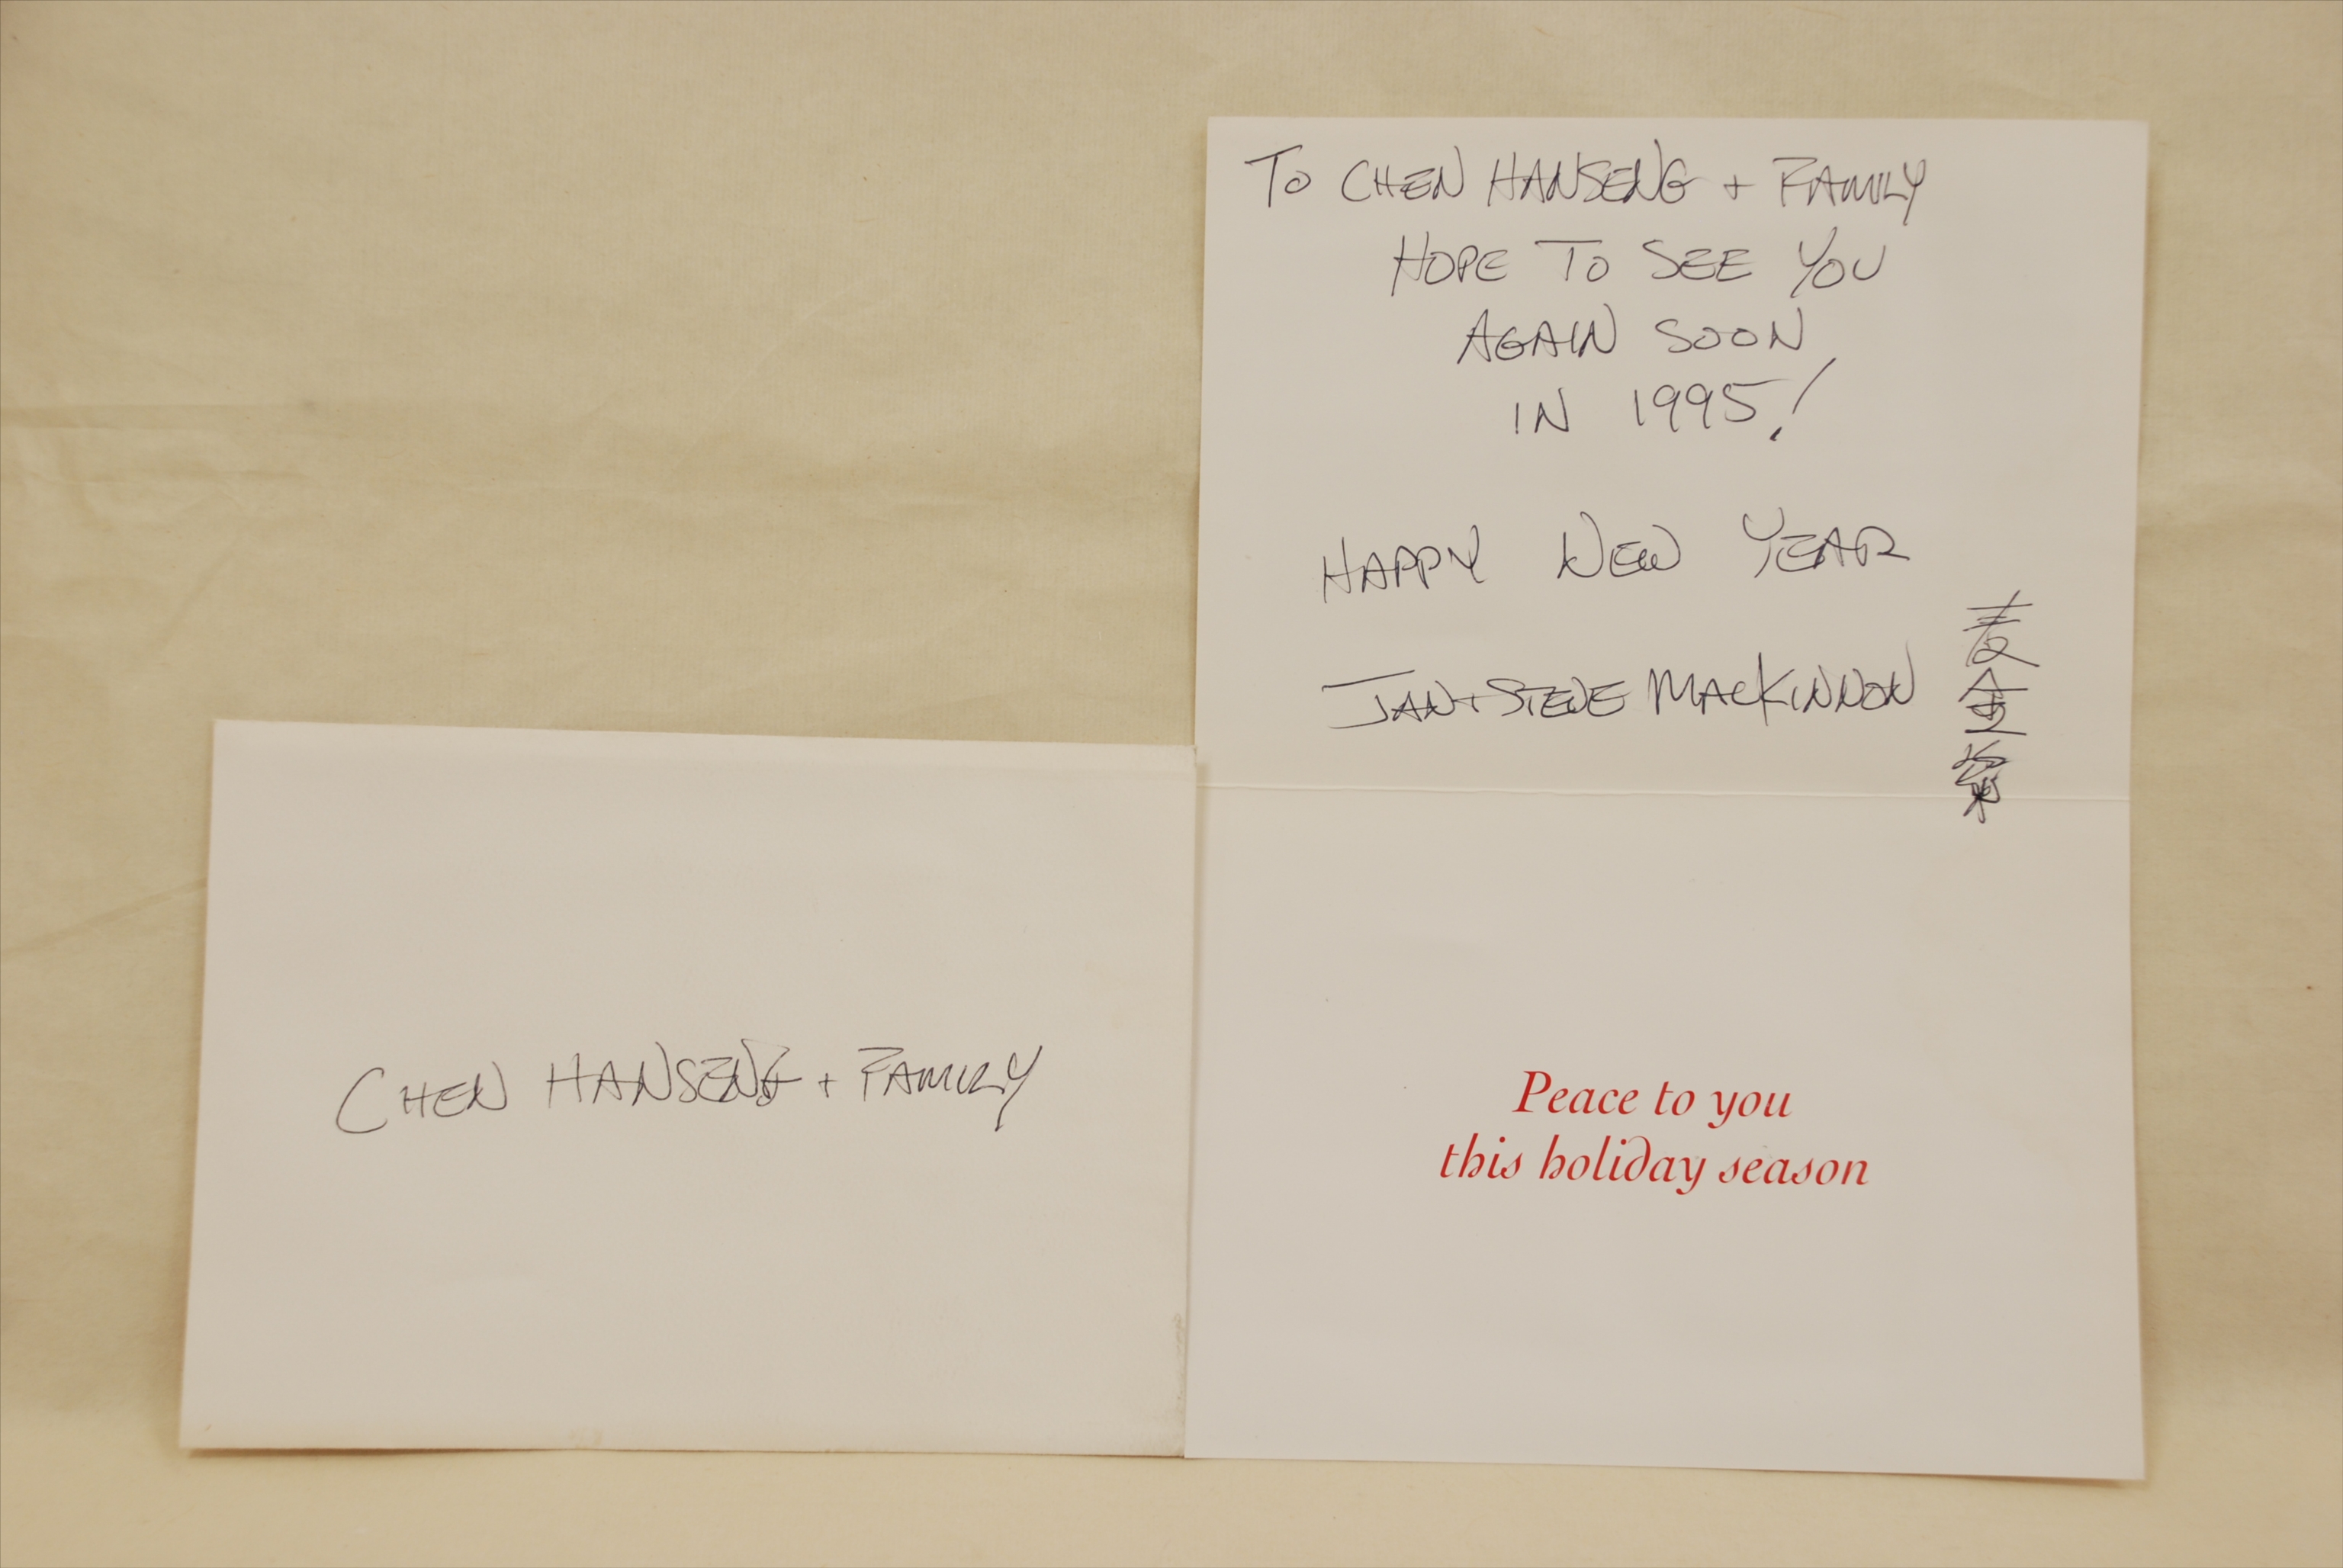 TO CHEN HANSENG + FAMILY
HOPE TO SEE YOU
AGAIN SOON
IN 1995!
HAPPY NEW YEAR
JAN + STEVE MACKINNON
麦金
Peace to you
this holiday season
CHEN HANSENG + FAMILY